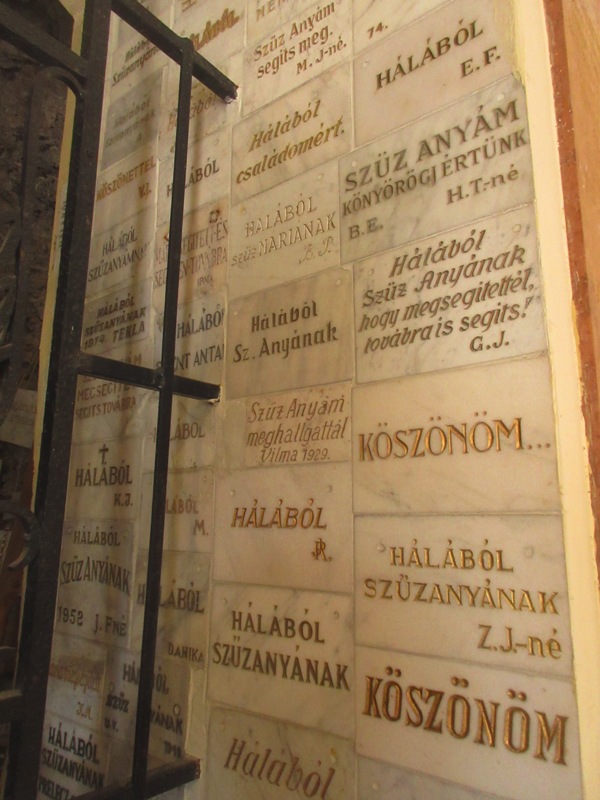 Szűz Anyám
segíts meg.
M. J-né.
74.
HÁLÁBÓL
E. F.
Hálából
családomért.
SZŰZ ANYÁM
KÖNYÖRÖGJ ÉRTÜNK
B. E. H. T.-né
HÁLÁBÓL
SZŰZ MARIANAK
B. P.
Hálából
Szűz Anyának
hogy megsegitettél,
továbra is segits!
G. J.
Hálából
Sz. Anyának
Szűz Anyám
meghallgattál
Vilma 1929.
KÖSZÖNÖM...
HÁLÁBÓL
R.
HÁLÁBÓL
SZŰZANYÁNAK
Z. J.-né
HÁLÁBÓL
SZŰZANYÁNAK
KÖSZÖNÖM
Hálából
KÖSZÖNETTEL
HÁLÁBÓL
HÁLÁBÓL
SZŰZANYÁMNAK
HÁLÁBÓL
SZŰZANYÁNAK
1974. TEKLA
HÁLÁBÓL
SZENT ANTAL
MEGSEGITE
SEGITS TOVÁBRA
HÁLÁBÓL
K. J.
HÁLÁBÓL
HÁLÁBÓL
M.
HÁLÁBÓL
SZŰZANYÁNAK
1958 J. FNÉ
HÁLÁBÓL
DANIKA
HÁLÁBÓL
SZŰZ ANYÁNAK
HÁLÁBÓL
SZŰZANYÁNAK